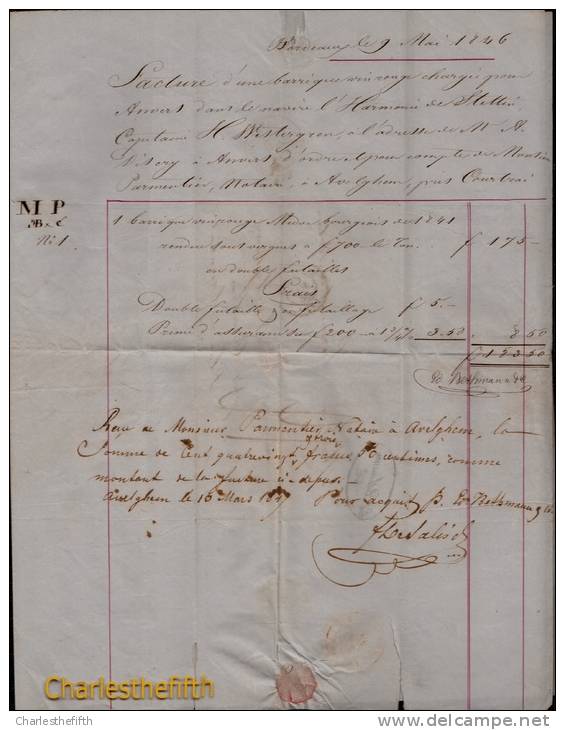 Bordeaux le 9 Mai 1846
Facture d'une barrique vin rouge chargée pour
Anvers dans le navire l'Harmonie de Stettin
Capitaine H. Westergren, à l'adresse de Mr. A.
à Anvers d'ordre et pour compte de Monsieur
Parmentier, Notaire, à Avelghem, près Courtrai
M P
B & C
No. 1
1 barrique vin rouge Médoc bourgeois de 1841
rendue sous vergues à f 700 le Ton. f 175 -
en double futailles
Frais
Double futaille & enfutaillage f 5.-
Prime d'assurance su f 200 à 1 3/4 % 3.50 . 8 50
f 183 50
Ed Bethmann & Ce
Reçu de Monsieur Parmentier, Notaire à Avelghem, la
Somme de Cent quatre vingt trois francs 50 centimes, comme
montant de la facture ci-dessus.
Avelghem le 16 Mars 1847 Pour acquit p. Ed Bethmann & Ce
Charlesthefifth
Charlesthefifth
www.delcampe.net